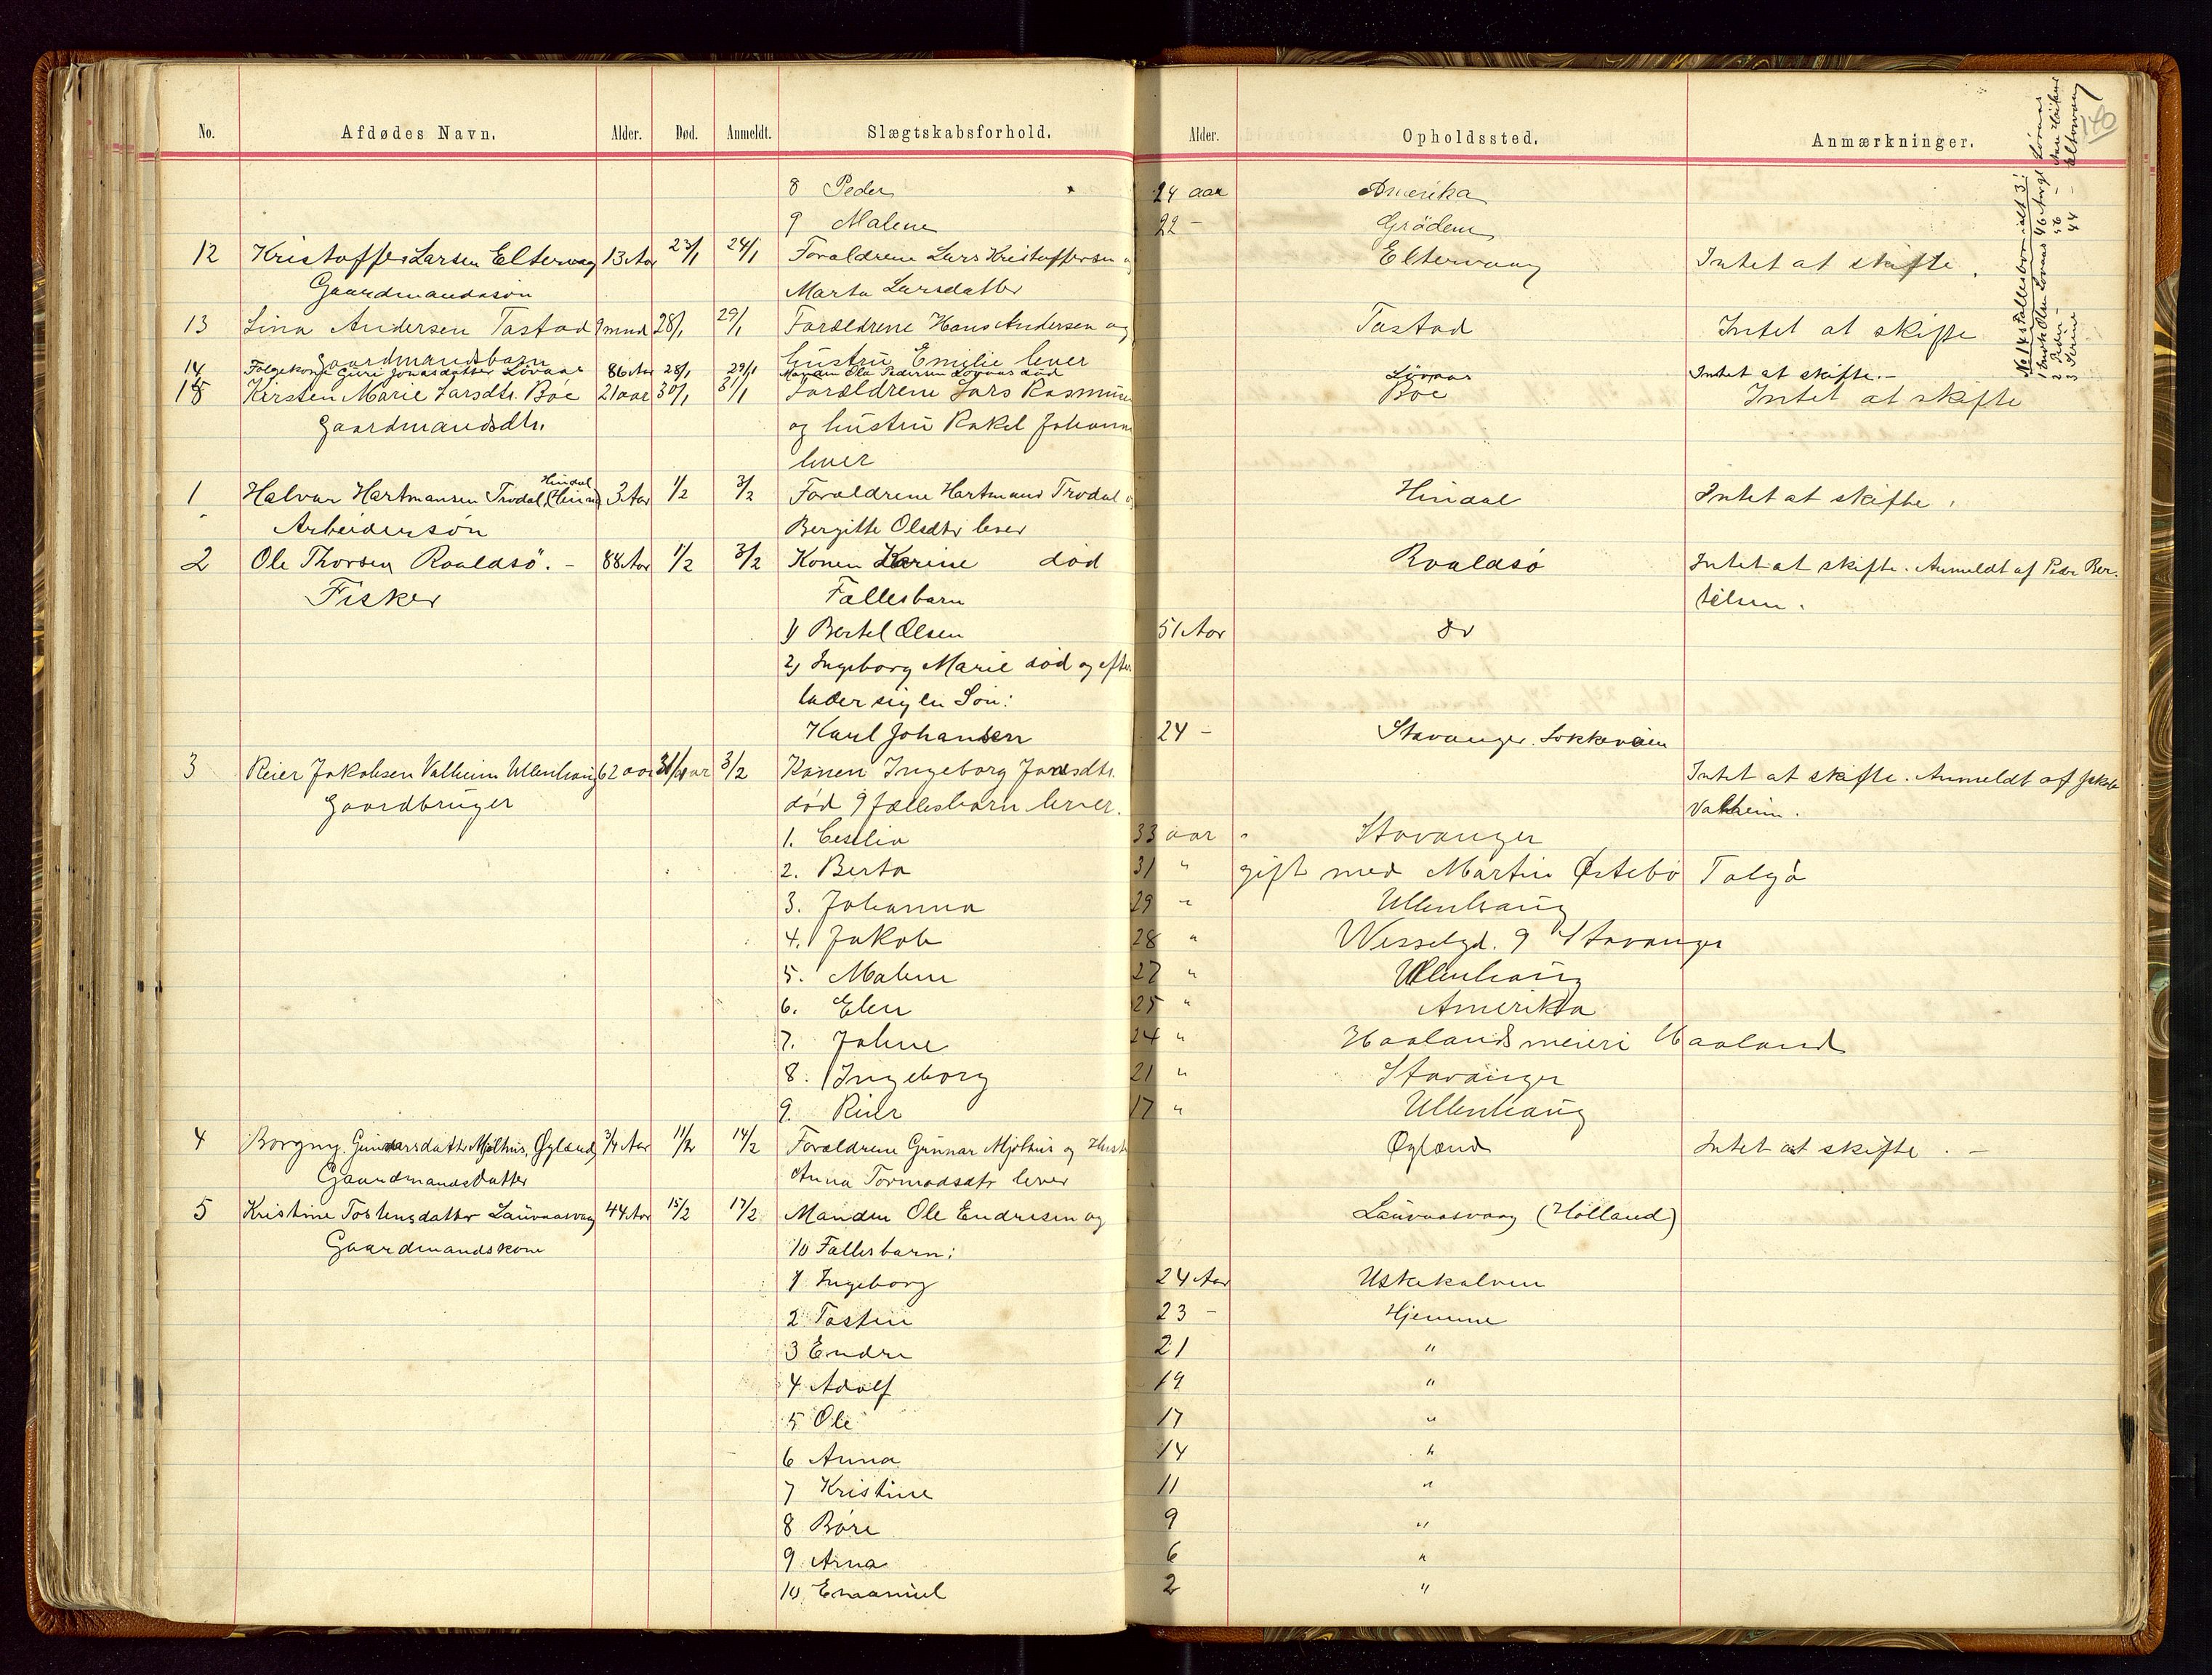 No. Afdødes Navn. Alder. Død. Anmeldt. Slægtskabsforhold. Alder. Opholdssted. Anmærkninger.
140
8 Peder 24 aar Amerika
9 Malene 22 - Grödem
12 Kristoffer Larsen Eltervaag 13 Aar 23/1 24/1 Foraldrene Lars Kristoffersen Eltervaag Intet at skifte.
Gaardmandssön Marta Larsdatter
13 Lina Andersen Tastad 9 mnd 28/1 29/1 Forældrene Hans Andersen og Tastad Intet at skifte
Gaardmandsbarn hustru Emilie lever
14 Følgekone Guri Jonasdatter Lövaas 86 Aar 28/1 29/1 Manden Ole Pedersen Lövaas död Lövaas Intet at skifte. -
15 Kirsten Marie Larsdtr. Böe 21 aar 30/1 31/1 Forældrene Lars Rasmusen Böe Intet at skifte
Gaardmandsdtr. og hustru Rakel Johanne
lever
Hindal
1 Halvar Hartmansen Trodal 3 Aar 1/2 3/2 Foraldrene Hartmand Trodal Hindal Intet at skifte.
Arbeidersön Bergitte Olsdtr lever
2 Ole Thorsen Roaldsö. - 88 Aar 1/2 3/2 Konen Karine död Roaldsö Intet at skifte. Anmeldt af Peder Ber-
Fisker Fallesbarn telsen.
1) Bertel Olsen 51 Aar do
2) Ingeborg Marie död og efter
lader sig en Sön:
Karl Johansen 24 - Stavanger. Lokkeveien
3 Reier Jakobsen Valheim Ullenhaug 62 aar 31/1 3/2 Konen Ingeborg Jonsdtr. Intet at skifte. Anmeldt af Jakob
Gaardbruger död 9 fællesbarn lever. Valheim.
1. Ceselia 33 aar Stavanger
2. Berta 31 " gift med Martin Østebö Talgö
3. Johanna 29 " Ullenhaug
4. Jakob 28 " Wesselgd. 9 Stavanger
5. Malene 27 " Ullenhaug
6. Elen 25 " Amerika
7. Johne 24 " Haalands meieri Haaland
8. Ingeborg 21 " Stavanger
9. Reier 17 " Ullenhaug
4 Borgny Gunnarsdatter Mjølhus, Øgland 3/4 Aar 11/2 14/2 Foraldrene Gunnar Mjölhus og Hust Øgland Intet at skifte. -
Gaardmandsdatter Anna Tormodsdtr lever
5 Kristine Tostensdatter Lauvaasvaag 44 Aar 15/2 17/2 Manden Ole Endresen og Lauvaasvaag (Holland)
Gaardmandskone 10 Fallesbarn:
1 Ingeborg 24 Aar Uskekalven
2 Tostein 23 - Hjemme
3 Endre 21 "
4 Adolf 19 "
5 Ole 17 "
6 Anna 14 "
7 Kristine 11 "
8 Bore 9 "
9 Arna 6 "
10 Emanuel 2 "
No 14s Fallesbørn ialt 3:
2 Peder 56 -
3 Serine 44 - Eltervaag